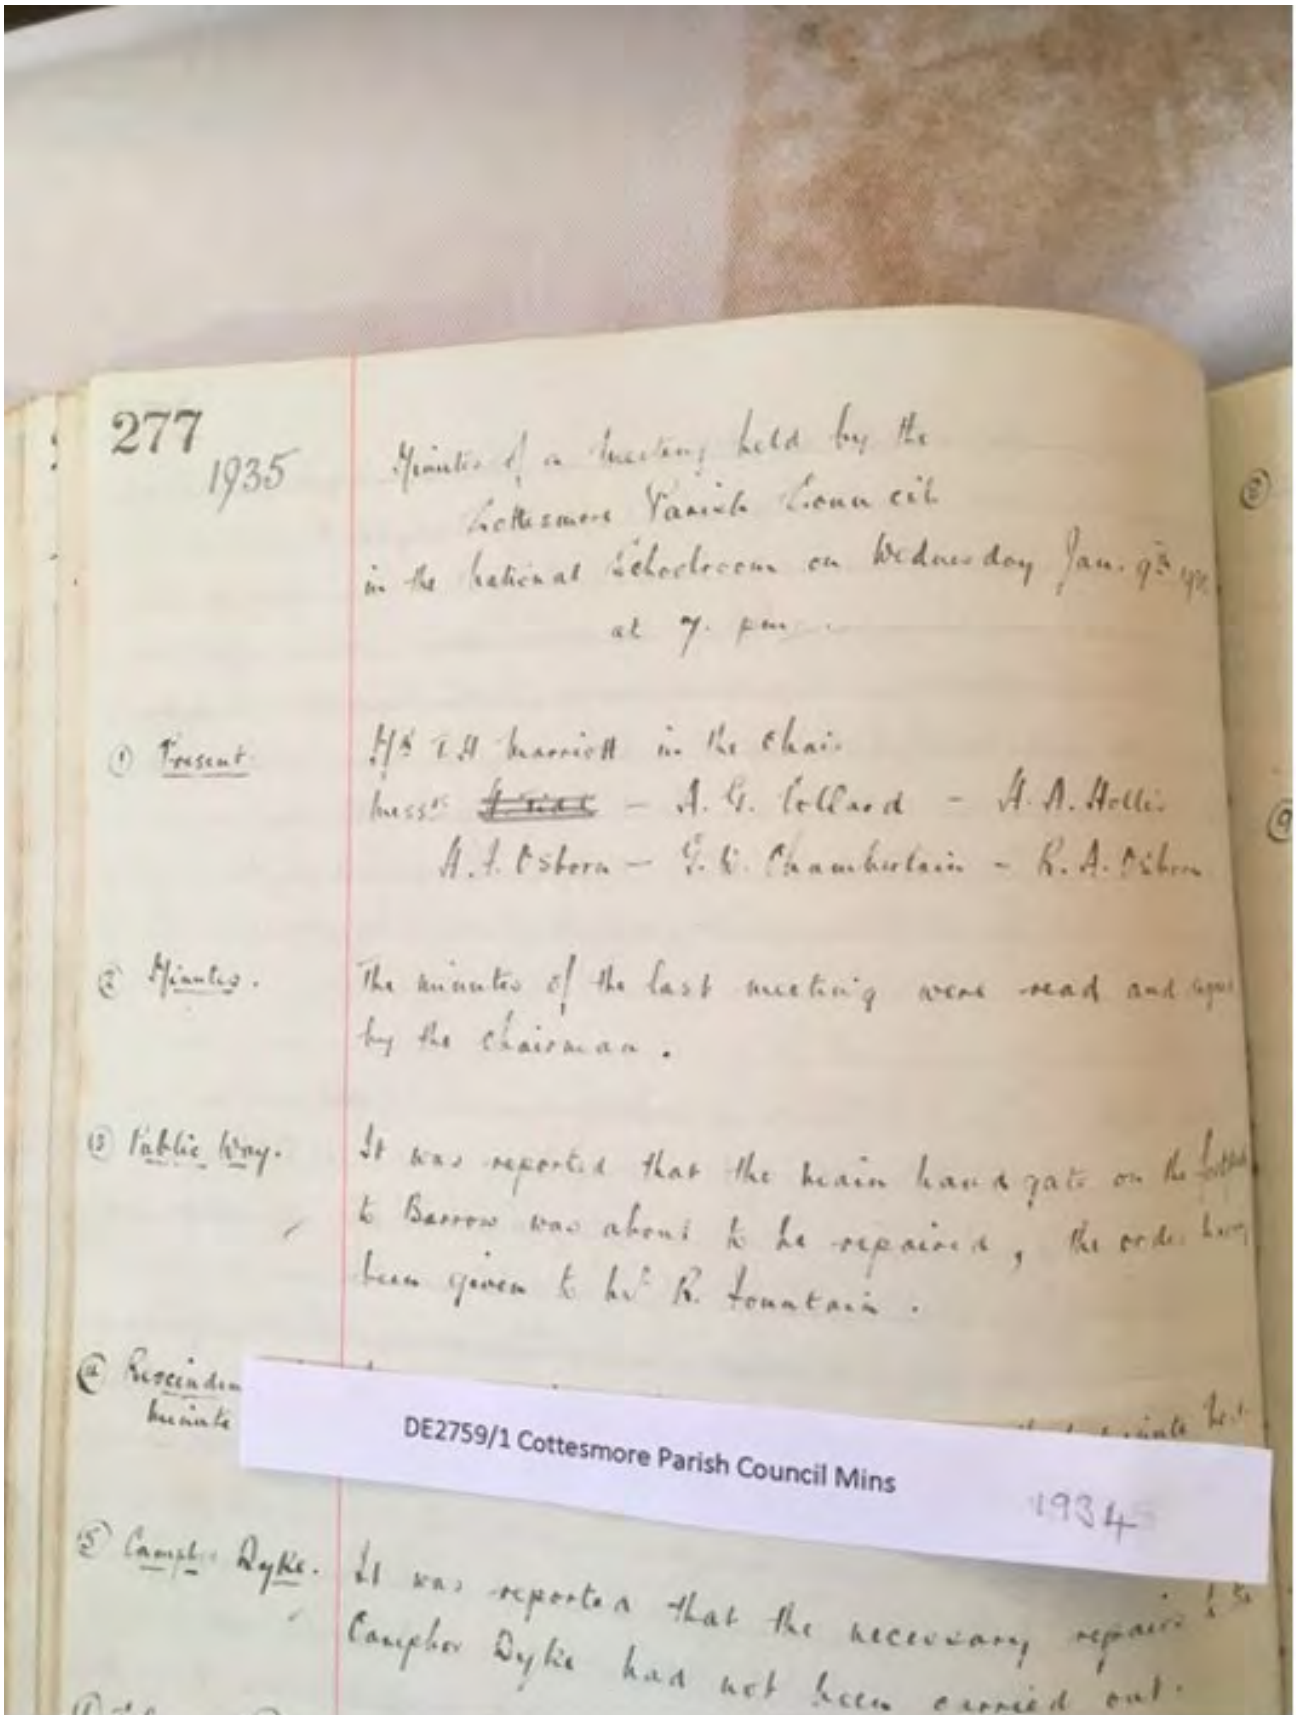 277
1935
Minutes of a meeting held by the
Cottesmore Parish Council
in the National Schoolroom on Wednesday Jan. 9th
at 7. pm.
① Present. Mr T H Marriott in the Chair
Messrs — A. G. Collard — H. A. Hollis
H. J. Osborn — G. W. Chamberlain — R. A. Osborn
② Minutes. The minutes of the last meeting were read and
by the chairman.
③ Public Way. It was reported that the main hand gate on the
to Barrow was about to be repaired, the order having
been given to Mr R. Fountain.
④
Minute
DE2759/1 Cottesmore Parish Council Mins
1934
⑤ Dyke. It was reported that the necessary repairs to the
Camphor Dyke had not been carried out.